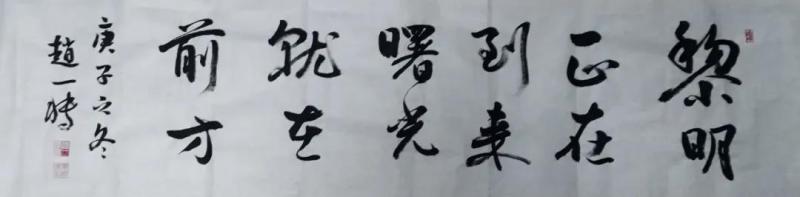 黎明
正在
到来
曙光
就在
前方
庚子之冬
趙一